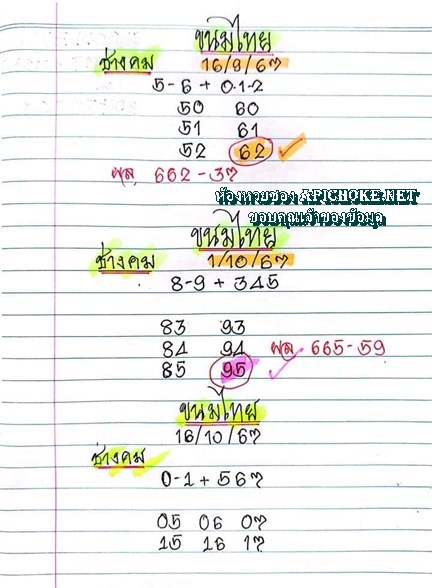 ขนมไทย
ช่างคม 16/9/67
5-6 + 0.1-2
50 60
51 61
52 62
ผล 662-37
ห้องหวยซอง APICHOKE.NET
ขอบคุณเจ้าของข้อมูล
ขนมไทย
ช่างคม 1/10/67
8-9 + 345
83 93
84 94 ผล 665-59
85 95
ขนมไทย
16/10/67
ช่างคม
0-1 + 567
05 06 07
15 16 17